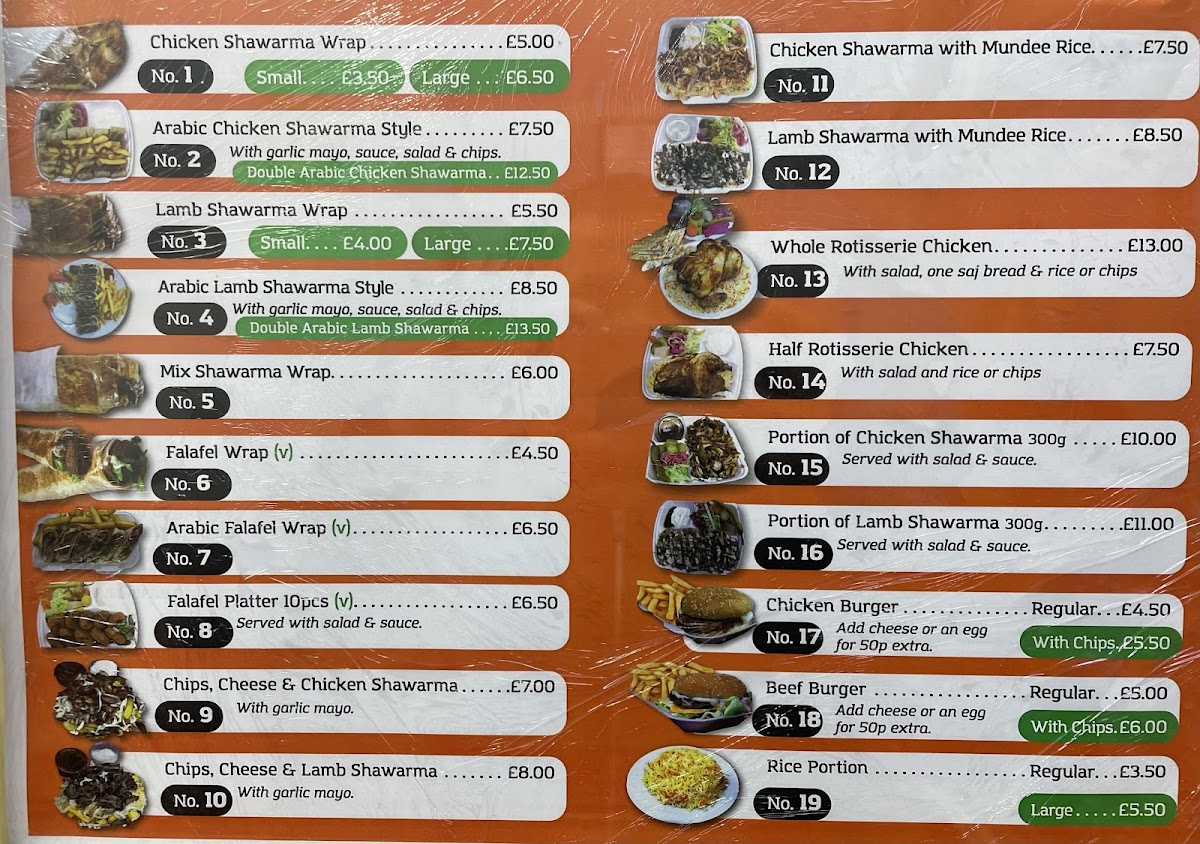 Chicken Shawarma Wrap.................£5.00
No. 1 Small....£3.50 Large...£6.50
Arabic Chicken Shawarma Style.........£7.50
No. 2 With garlic mayo, sauce, salad & chips.
Double Arabic Chicken Shawarma..£12.50
Lamb Shawarma Wrap..................£5.50
No. 3 Small....£4.00 Large....£7.50
Arabic Lamb Shawarma Style............£8.50
No. 4 With garlic mayo, sauce, salad & chips.
Double Arabic Lamb Shawarma....£13.50
Mix Shawarma Wrap....................£6.00
No. 5
Falafel Wrap (v)........................£4.50
No. 6
Arabic Falafel Wrap (v)..................£6.50
No. 7
Falafel Platter 10pcs (v)..................£6.50
No. 8 Served with salad & sauce.
Chips, Cheese & Chicken Shawarma......£7.00
No. 9 With garlic mayo.
Chips, Cheese & Lamb Shawarma.......£8.00
No. 10 With garlic mayo.
Chicken Shawarma with Mundee Rice......£7.50
No. 11
Lamb Shawarma with Mundee Rice.......£8.50
No. 12
Whole Rotisserie Chicken...............£13.00
No. 13 With salad, one saj bread & rice or chips
Half Rotisserie Chicken..................£7.50
No. 14 With salad and rice or chips
Portion of Chicken Shawarma 300g.....£10.00
No. 15 Served with salad & sauce.
Portion of Lamb Shawarma 300g.........£11.00
No. 16 Served with salad & sauce.
Chicken Burger..............Regular...£4.50
No. 17 Add cheese or an egg
for 50p extra. With Chips.£5.50
Beef Burger.................Regular...£5.00
No. 18 Add cheese or an egg
for 50p extra. With Chips.£6.00
Rice Portion.................Regular...£3.50
No. 19 Large.....£5.50